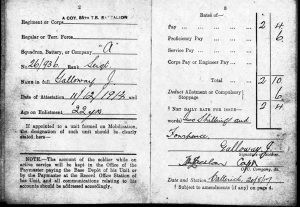 2
A COY. 88TH T.R. BATTALION
Regiment or Corps
Regular or Terr. Force
Squadron, Battery, or Company "A"
No. 26/936 Rank Sergt
Name in full Galloway J.
Date of Attestation 11/12/1914
Age on Enlistment 22 yrs
If appointed to a unit formed on Mobilization,
the designation of such unit should be clearly
stated here:—
NOTE.—The account of the soldier while on
active service will be kept in the Office of the
Paymaster paying the Base Depot of his Unit or
by the Paymaster at the Record Office Station of
his Unit, and all communications relating to his
accounts should be addressed accordingly.
3
Rates of—
Pay 2 4
Proficiency Pay 6
Service Pay
Corps Pay or Engineer Pay
Total 2 10
Deduct Allotment or Compulsory
Stoppage 6
* NET DAILY RATE FOR ISSUE— 2 4
words) Two Shillings and
Fourpence
Galloway J.
Signature of Soldier.
Capt
O.C., Company, &c.
Date and Station
* Subject to amendments (if any) on page 4.